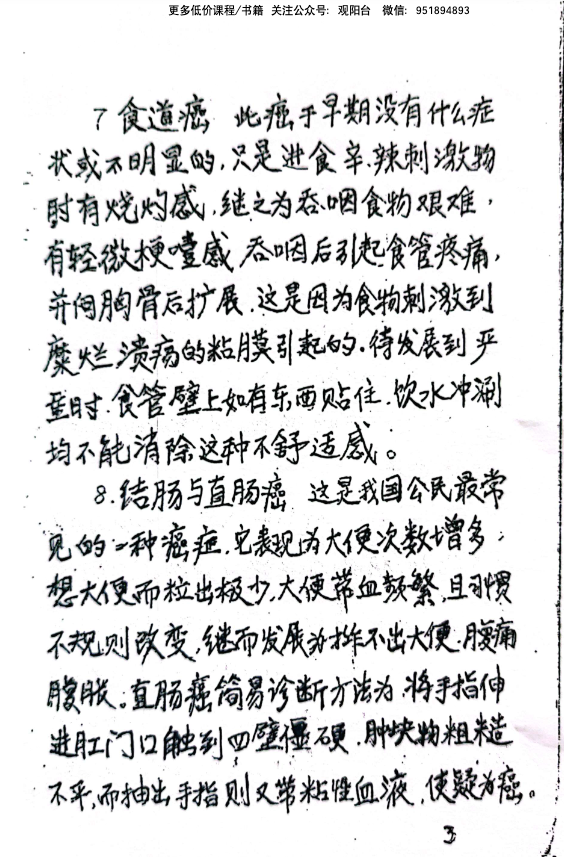 更多低价课程/书籍 关注公众号: 观阳台 微信: 951894893
7 食道癌 此癌于早期没有什么症
状或不明显的,只是进食辛.辣刺激物
时有烧灼感,继之为吞咽食物艰难,
有轻微梗噎感 吞咽后引起食管疼痛,
并向胸骨后扩展.这是因为食物刺激到
糜烂溃疡的粘膜引起的.待发展到严
重时.食管壁上如有东西贴住.饮水冲涮
均不能消除这种不舒适感。
8.结肠与直肠癌 这是我国公民最常
见的一种癌症.它表现为大便次数增多,
想大便而粒出极少,大便带血频繁,且习惯
不规则改变,继而发展为拃不出大便.腹痛
腹胀。直肠癌简易诊断方法为.将手指伸
进肛门口触到四壁僵硬.肿块物粗糙
不平,而抽出手指则又带粘性血液,使疑为癌。
3